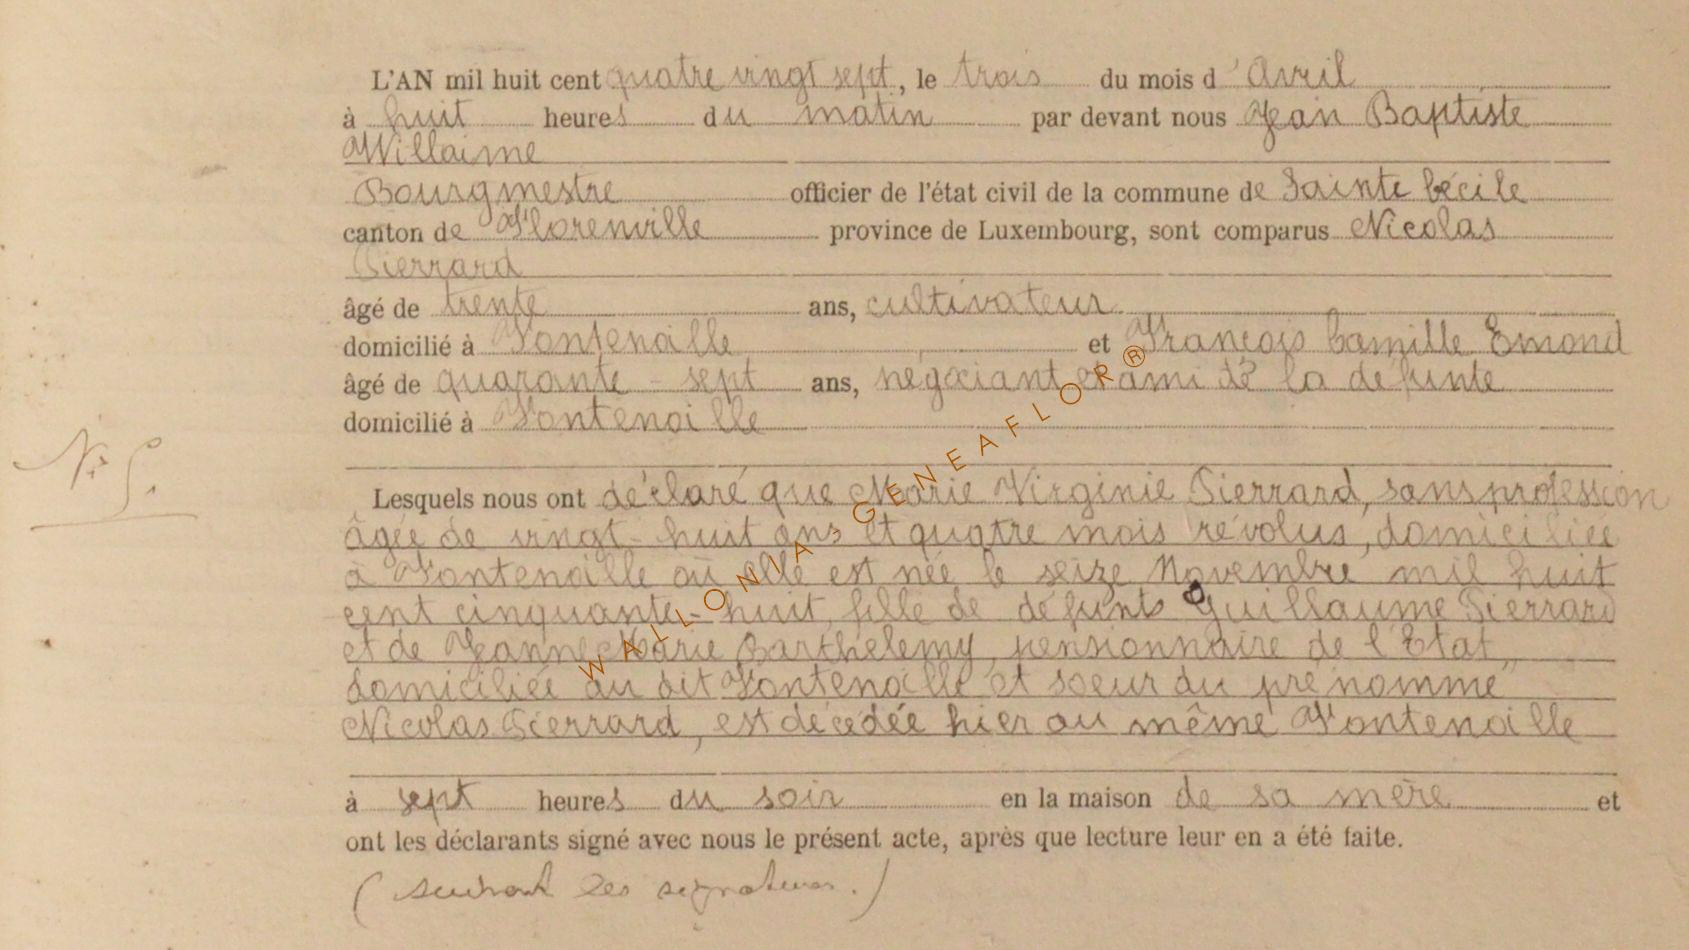 L'AN mil huit cent quatre vingt sept, le trois du mois d'Avril
à huit heures du matin par devant nous Jean Baptiste
Willaime
Bourgmestre officier de l'état civil de la commune de Sainte Cécile
canton de Florenville province de Luxembourg, sont comparus Nicolas
Pierrard
âgé de trente ans, cultivateur
domicilié à Fontenoille et François Camille Emond
âgé de quarante-sept ans, négociant et ami de la défunte
domicilié à Fontenoille
N° 5.
Lesquels nous ont déclaré que Marie Virginie Pierrard, sans profession
âgée de vingt-huit ans et quatre mois révolus, domiciliée
à Fontenoille où elle est née le seize Novembre mil huit
cent cinquante-huit, fille de défunts Guillaume Pierrard
et de Jeanne Marie Barthélemy, pensionnaire de l'Etat,
domiciliée au dit Fontenoille et soeur du prénommé
Nicolas Pierrard, est décédée hier au même Fontenoille
à sept heures du soir en la maison de sa mère et
ont les déclarants signé avec nous le présent acte, après que lecture leur en a été faite.
(suivent les signatures.)
WALLONIA GENEAFLOR®